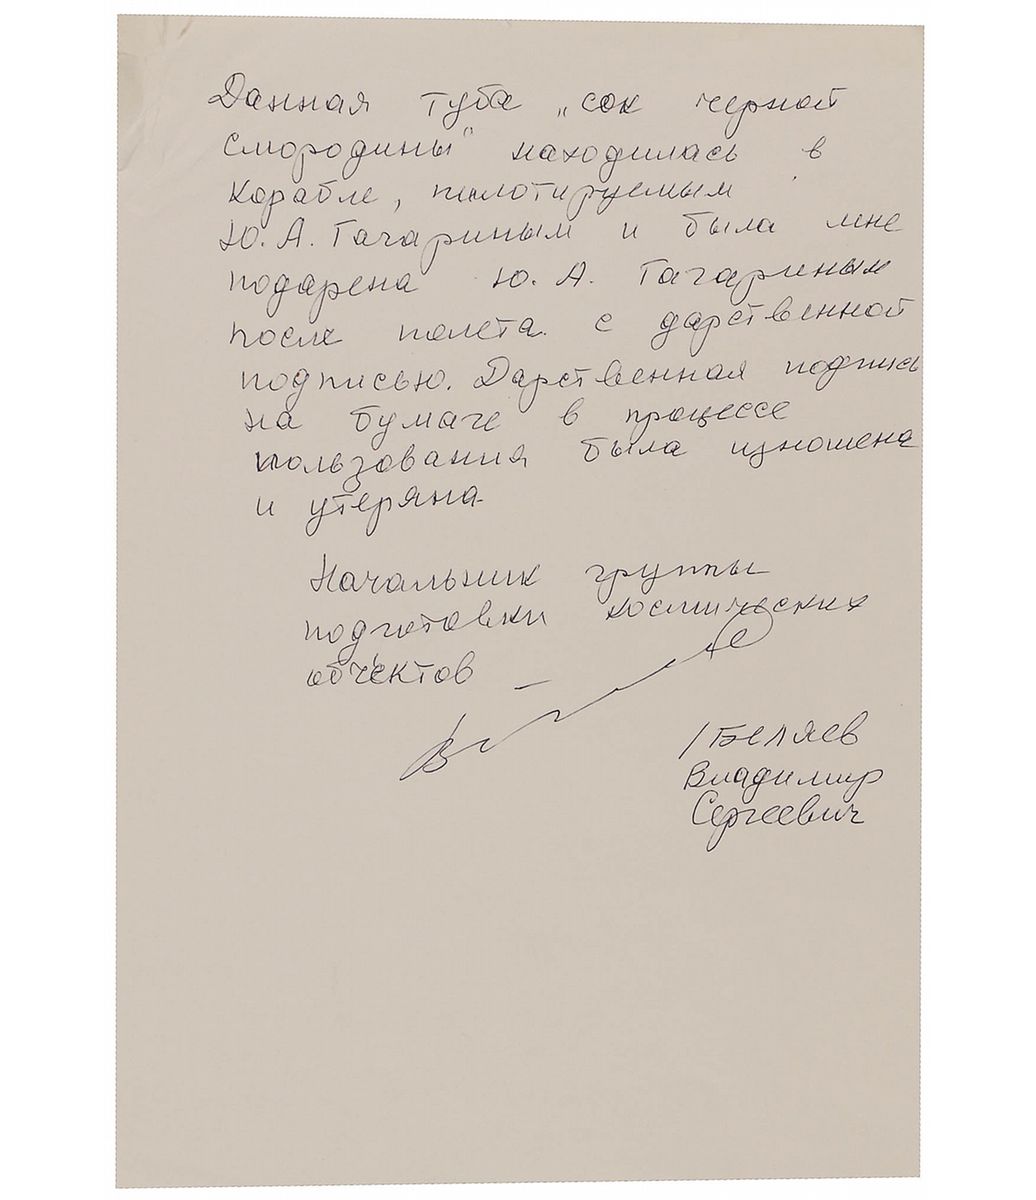 Данная туба „сок черной
смородины" находилась в
корабле, пилотируемым
Ю. А. Гагариным и была мне
подарена Ю. А. Гагариным
после полета с дарственной
подписью. Дарственная подпись
на бумаге в процессе
пользования была изношена
и утеряна.
Начальник группы
подготовки космических
объектов
/ Беляев
Владимир
Сергеевич